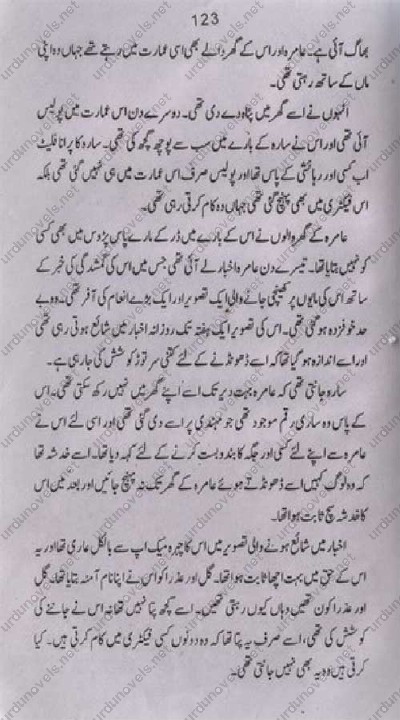 123
بھاگ آئی ہے۔ عامرہ اور اس کے گھر والے بھی اسی عمارت میں رہتے تھے جہاں وہ اپنی
ماں کے ساتھ رہتی تھی۔
انہوں نے اسے گھر میں پناہ دے دی تھی۔ دوسرے دن اس عمارت میں پولیس
آئی تھی اور اس نے سارہ کے بارے میں سب سے پوچھ گچھ کی تھی۔ سارہ کا پرانا فلیٹ
اب کسی اور رہائشی کے پاس تھا اور پولیس صرف اس عمارت میں ہی نہیں گئی تھی بلکہ
اس فیکٹری میں بھی پہنچ گئی تھی جہاں وہ کام کرتی رہی تھی۔
عامرہ کے گھر والوں نے اس کے بارے میں ڈر کے مارے پاس پڑوس میں بھی کسی
کو نہیں بتایا تھا۔ تیسرے دن عامرہ اخبار لے آئی تھی جس میں اس کی گمشدگی کی خبر کے
ساتھ اس کی مایوں پر کھینچی جانے والی ایک تصویر اور ایک بڑے انعام کی آفر تھی۔ وہ بے
حد خوفزدہ ہو گئی تھی۔ اس کی تصویر ایک ہفتہ تک روزانہ اخبار میں شائع ہوتی رہی تھی
اور اسے اندازہ ہو گیا تھا کہ اسے ڈھونڈنے کے لئے کتنی سر توڑ کوشش کی جا رہی ہے۔
سارہ جانتی تھی کہ عامرہ بہت دیر تک اسے اپنے گھر میں نہیں رکھ سکتی تھی۔ اس
کے پاس وہ ساری رقم موجود تھی جو مہندی پر اسے دی گئی تھی اور اسی لئے اس نے
عامرہ سے اپنے لئے کسی اور جگہ کا بندوبست کرنے کے لئے کہہ دیا تھا۔ اسے خدشہ تھا
کہ وہ لوگ کہیں اسے ڈھونڈتے ہوئے عامرہ کے گھر تک نہ پہنچ جائیں اور بعد میں اس
کا خدشہ سچ ثابت ہوا تھا۔
اخبار میں شائع ہونے والی تصویر میں اس کا چہرہ میک اپ سے بالکل عاری تھا اور یہ
اس کے حق میں بہت اچھا ثابت ہوا تھا۔ گل اور عذرا کو اس نے اپنا نام آمنہ بتایا تھا۔ گل
اور عذرا کون تھیں وہاں کیوں رہتی تھیں۔ اسے کچھ پتا نہیں تھا نہ اس نے جاننے کی
کوشش کی تھی، اسے صرف یہ پتا تھا کہ وہ دونوں کسی فیکٹری میں کام کرتی ہیں۔ کیا
کرتی ہیں وہ یہ بھی نہیں جانتی تھی۔
urdunovels.net